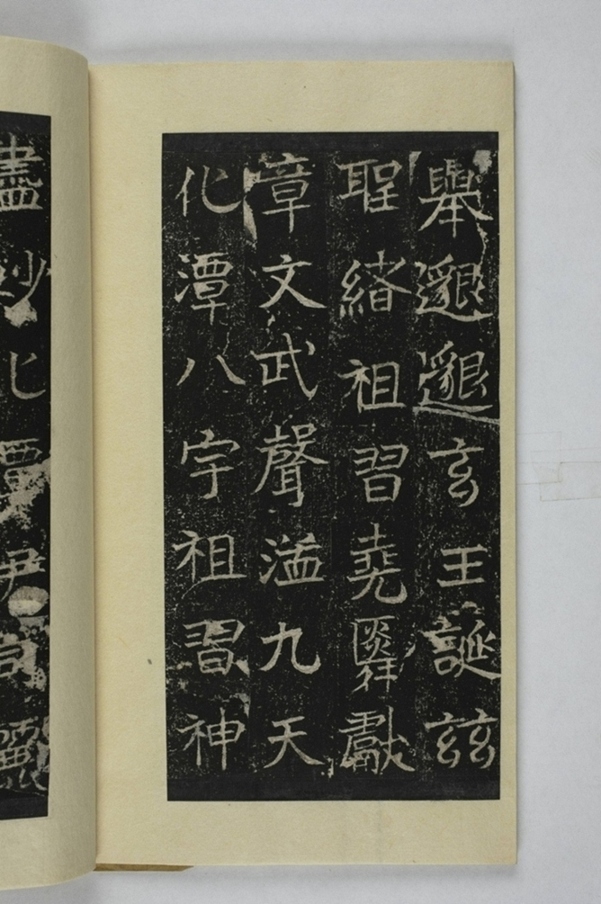 舉邈邈玄王誕茲
聖緒祖習堯舜獻
章文武聲溢九天
化潭八宇祖習神
盡妙